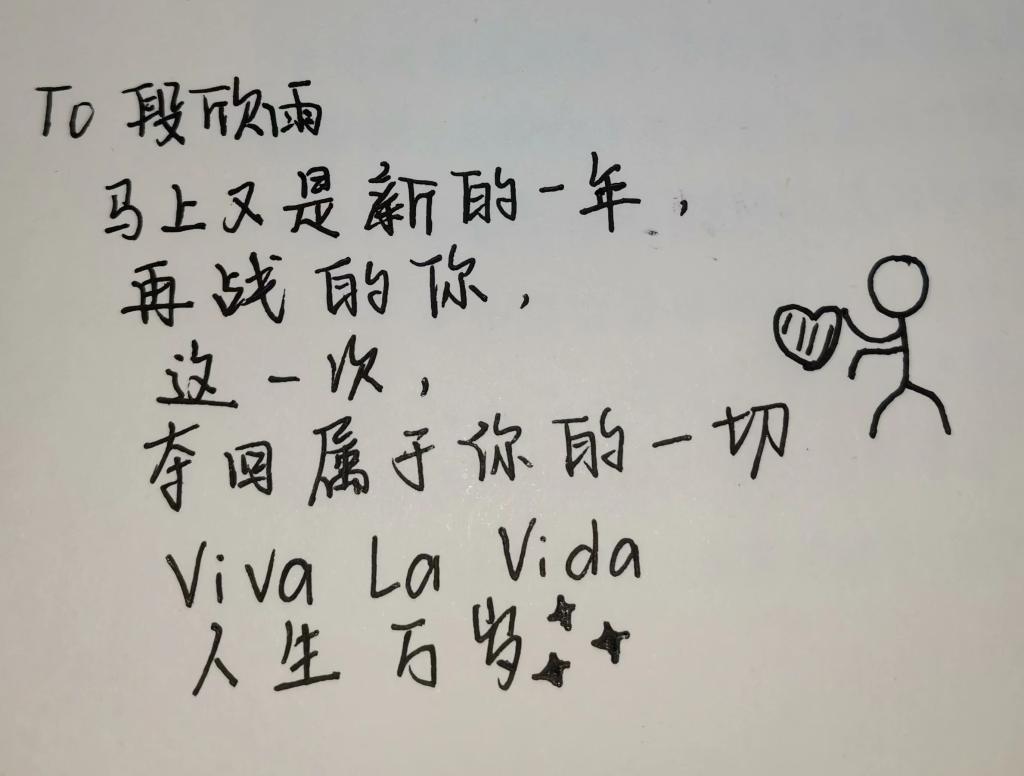 To 段欣雨
马上又是新的一年，
再战的你，
这一次，
夺回属于你的一切
Viva La Vida
人生万岁